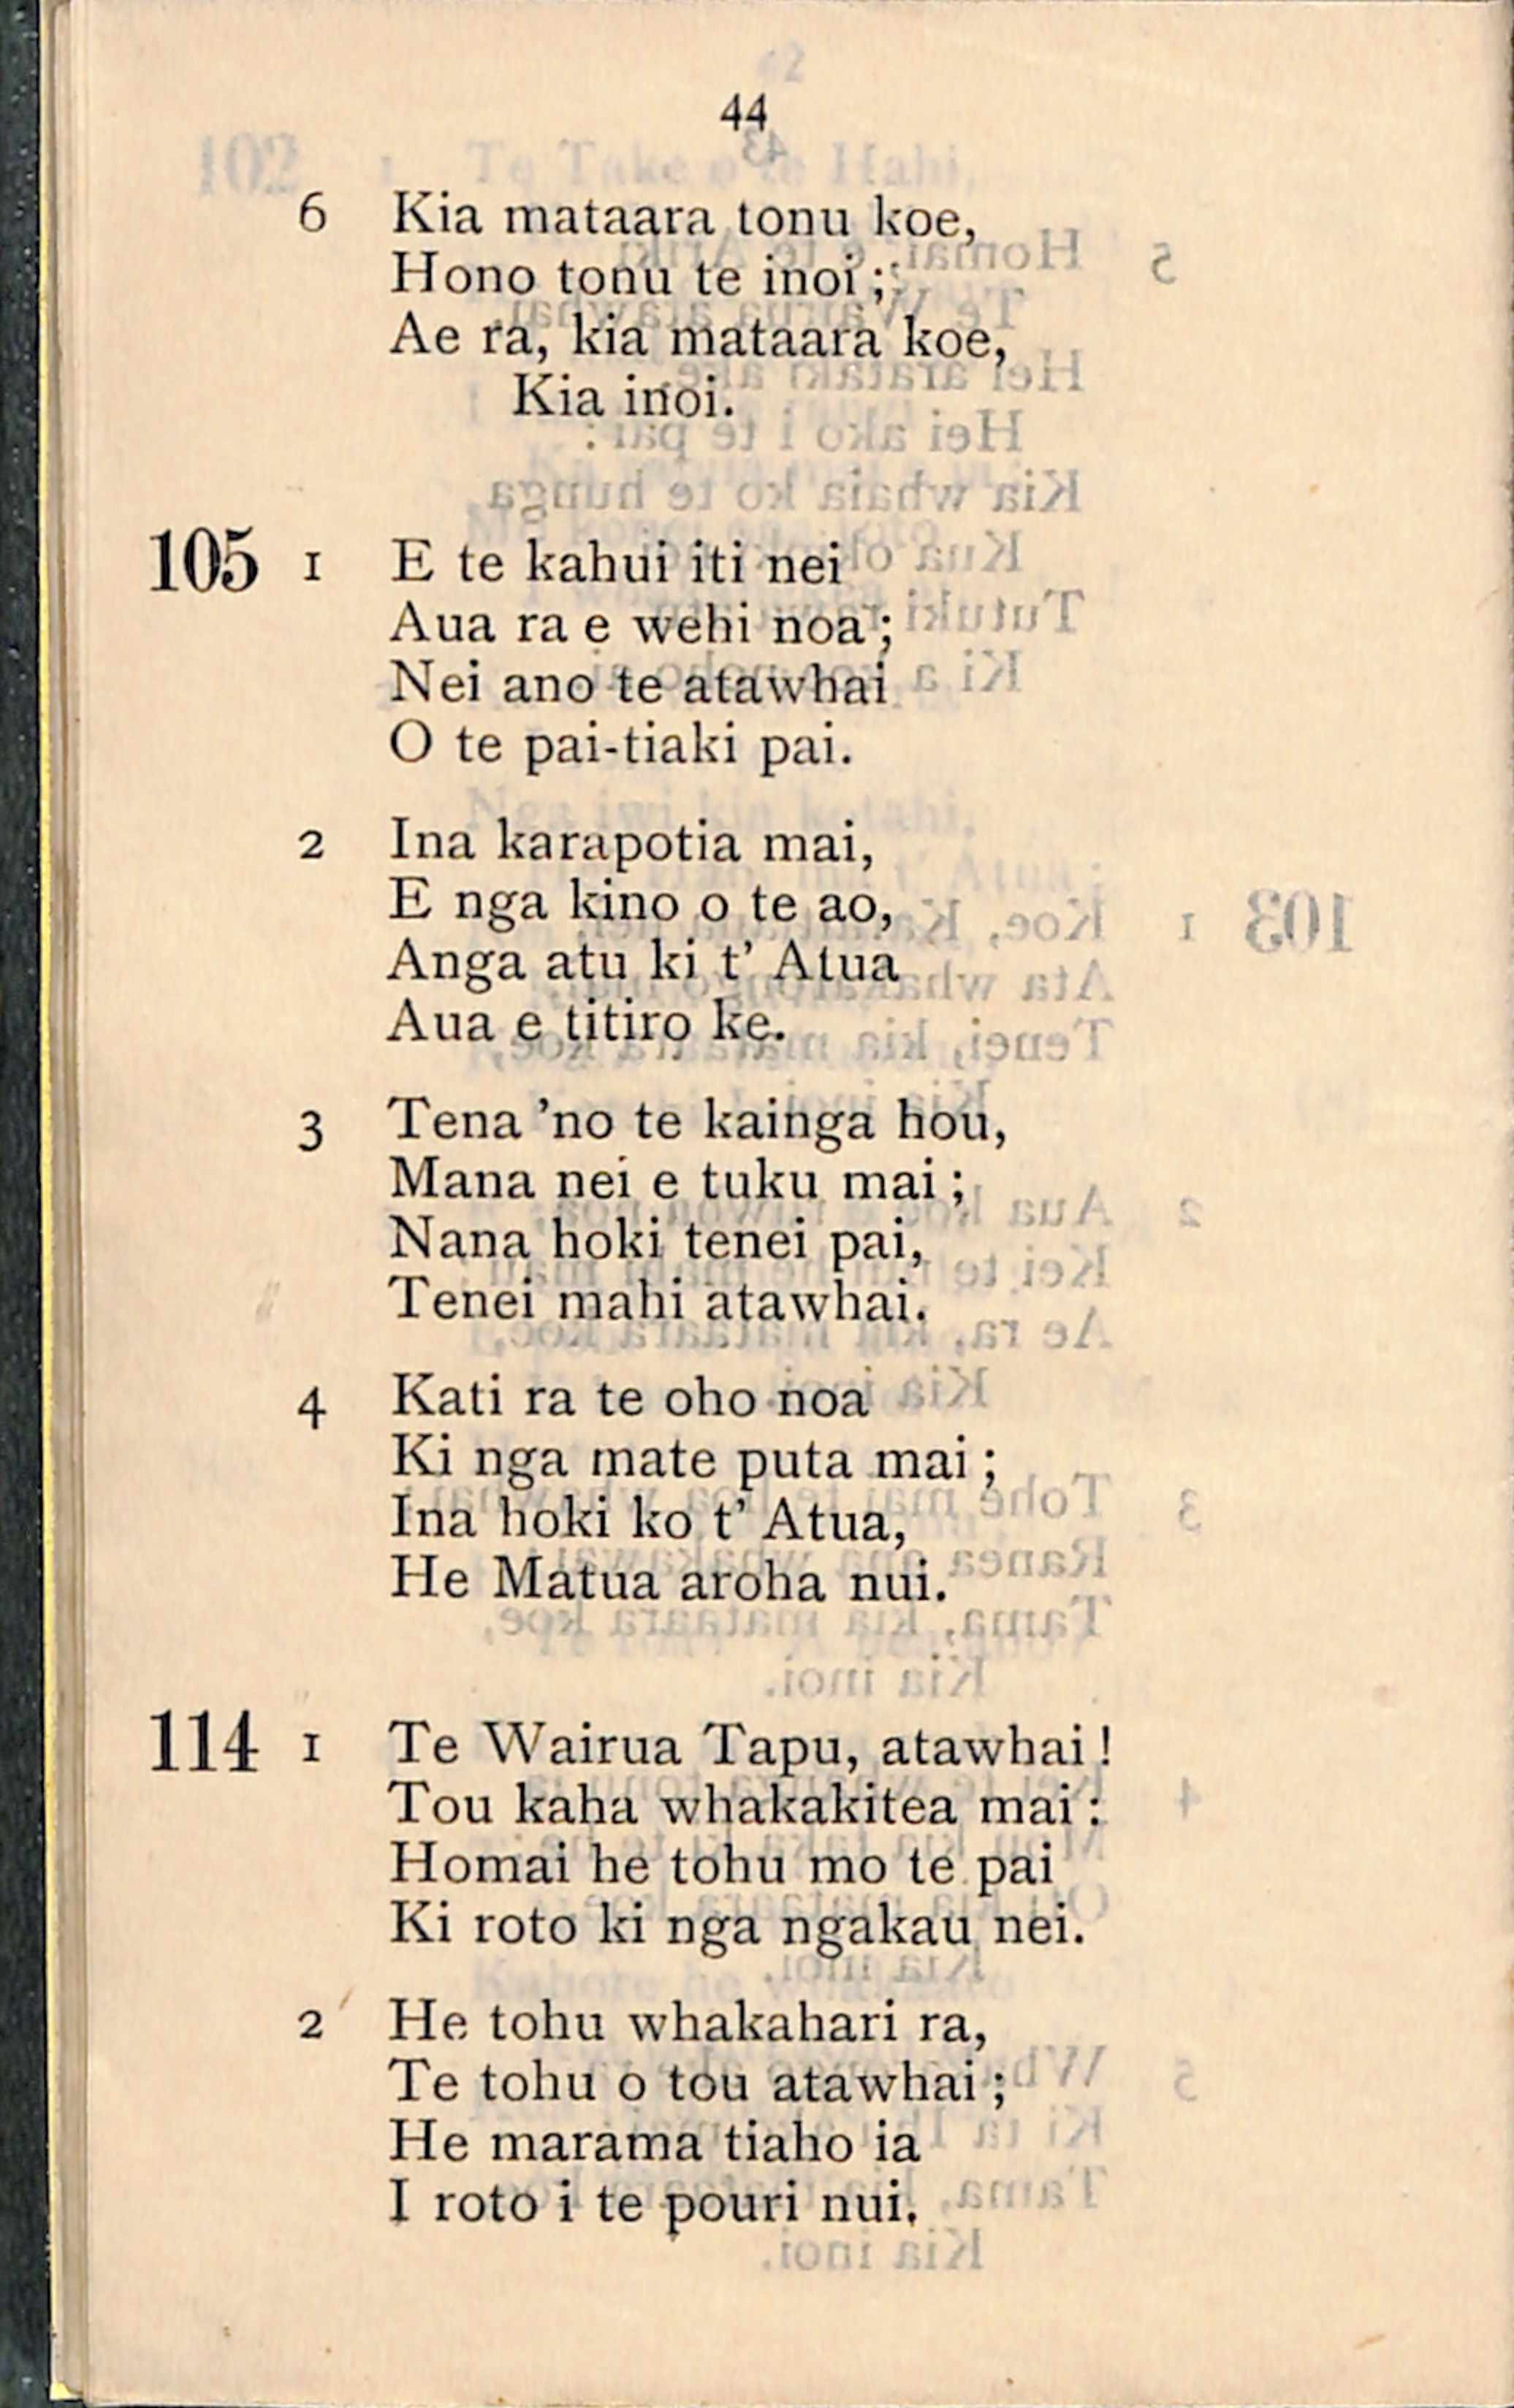 44
6 Kia mataara tonu koe,
Hono tonu te inoi ;
Ae ra, kia mataara koe,
Kia inoi.
105 1 E te kahui iti nei
Aua ra e wehi noa ;
Nei ano te atawhai
O te pai-tiaki pai.
2 Ina karapotia mai,
E nga kino o te ao,
Anga atu ki t' Atua
Aua e titiro ke.
3 Tena 'no te kainga hou,
Mana nei e tuku mai ;
Nana hoki tenei pai,
Tenei mahi atawhai.
4 Kati ra te oho noa
Ki nga mate puta mai ;
Ina hoki ko t' Atua,
He Matua aroha nui.
114 1 Te Wairua Tapu, atawhai !
Tou kaha whakakitea mai :
Homai he tohu mo te pai
Ki roto ki nga ngakau nei.
2 He tohu whakahari ra,
Te tohu o tou atawhai ;
He marama tiaho ia
I roto i te pouri nui.